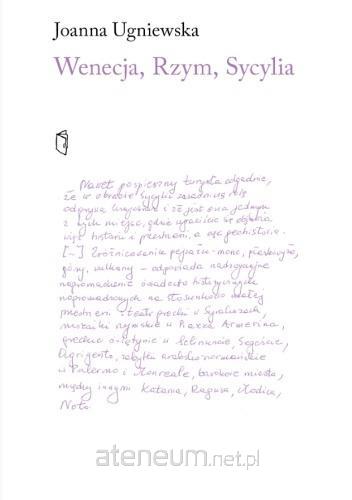 Joanna Ugniewska
Wenecja, Rzym, Sycylia
Nawet pospieszny turysta odgadnie,
że w obrazie Sycylii zasadniczą rolę
odgrywa krajobraz i że jest ona jednym
z tych miejsc, gdzie wyraziście się objawia
więź historii i przestrzeni, a więc geohistoria.
[...] Zróżnicowaniu pejzażu – morze, płaskowyże,
góry, wulkany – odpowiada nadzwyczajne
nagromadzenie świadectw historycznych
nagromadzonych na stosunkowo małej
przestrzeni: teatr grecki w Syrakuzach,
mozaiki rzymskie w Piazza Armerina,
greckie świątynie w Selinuncie, Segeście,
Agrigento, zabytki arabsko-normańskie
w Palermo i Monreale, barokowe miasta,
między innymi Katania, Ragusa, Modica,
Noto.
ateneum.net.pl